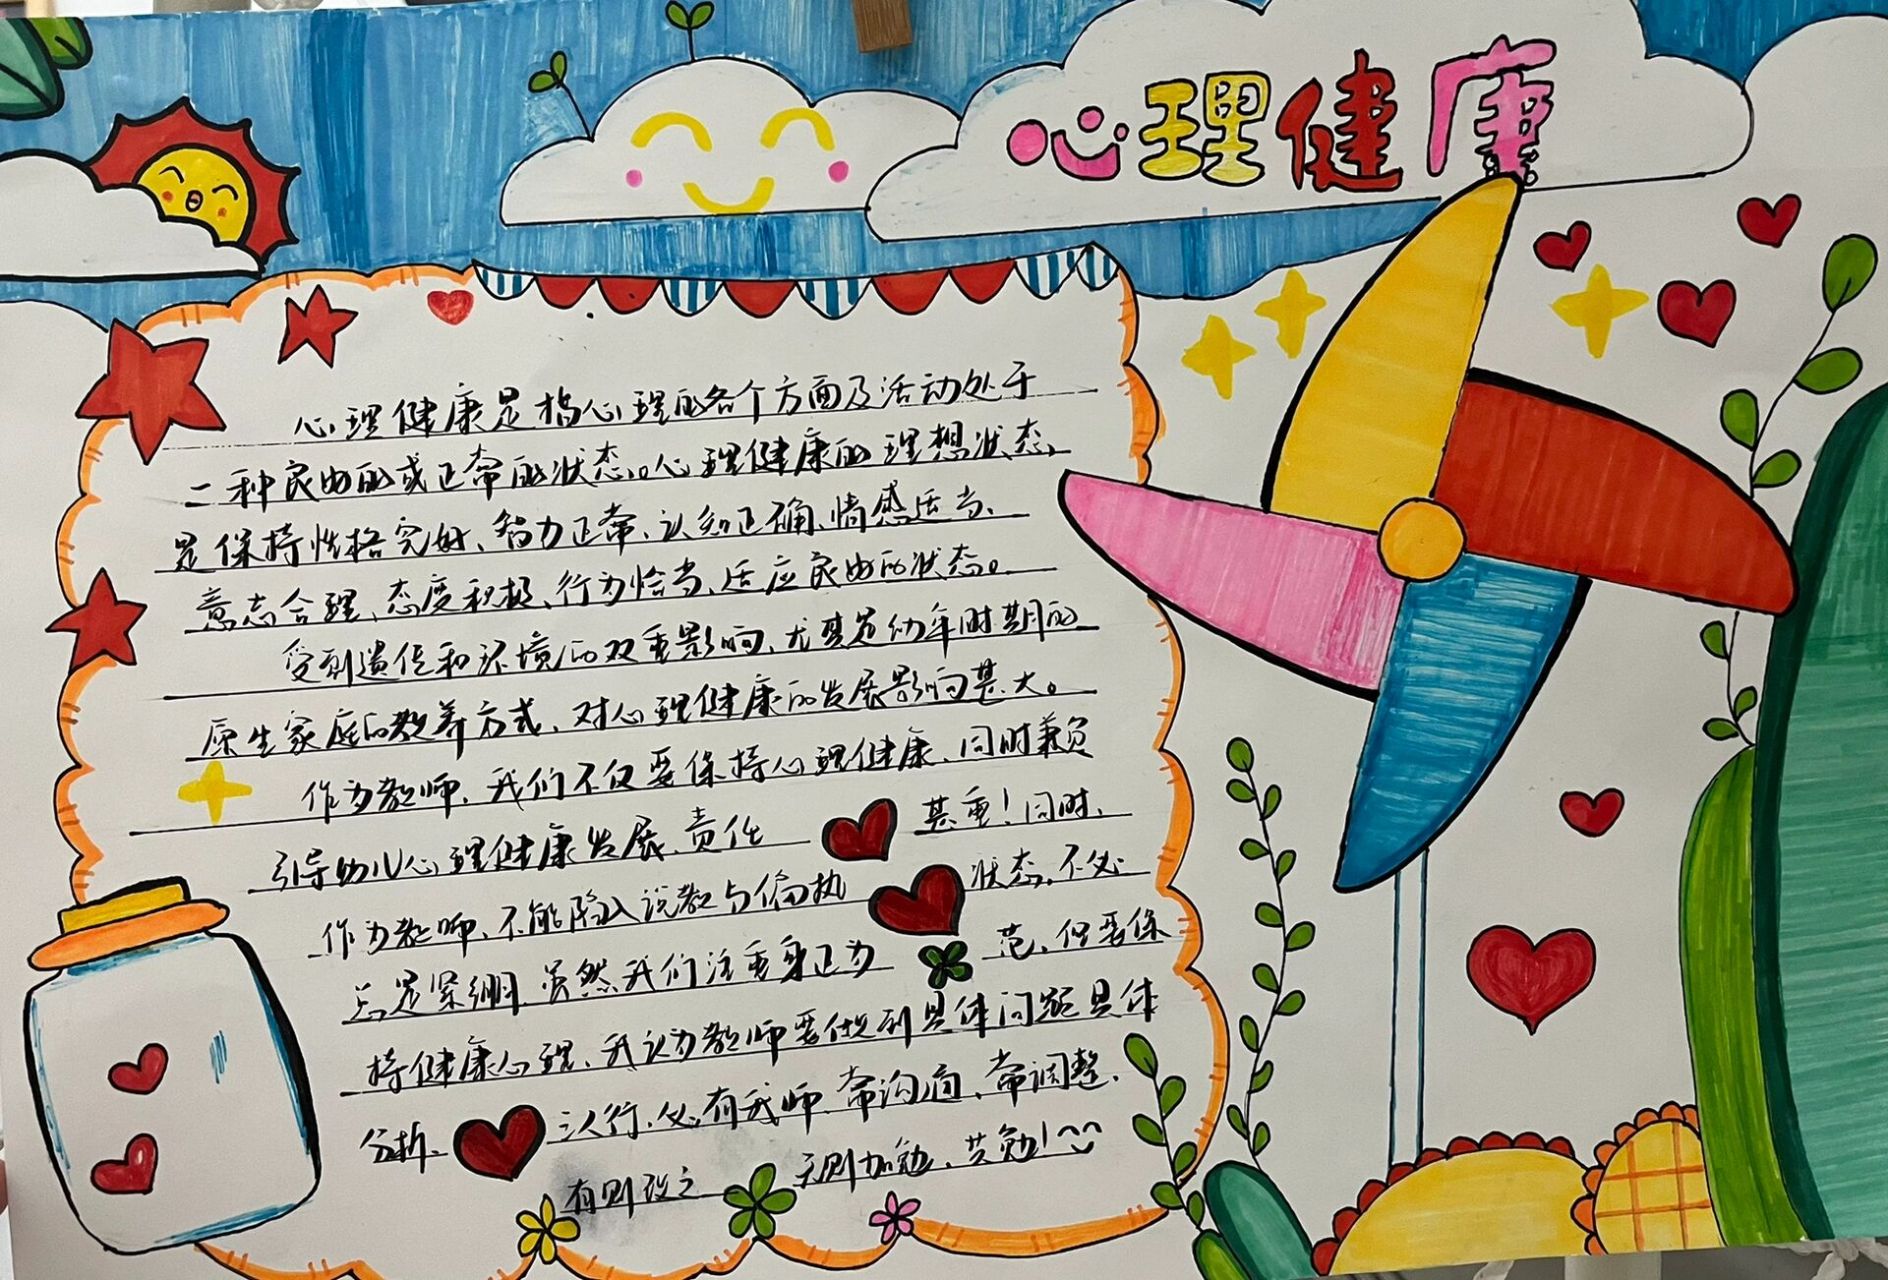 心理健康
心理健康是指心理的各个方面及活动处于
一种良好的或正常的状态。心理健康的理想状态
是保持性格完好、智力正常、认知正确、情感适当、
意志合理、态度积极、行为恰当、适应良好的状态。
受到遗传和环境的双重影响,尤其是幼年时期的
原生家庭的教养方式,对心理健康的发展影响甚大。
作为教师,我们不仅要保持心理健康,同时兼负
引导幼儿心理健康发展,责任 甚重!同时,
作为教师,不能陷入说教与偏执 状态,不必
总是紧绷,虽然我们注重身正为 范,但要保
持健康心理,我认为教师要做到具体问题具体
分析。 三人行,必有我师,常沟通,常调整,
有则改之 无则加勉,共勉!